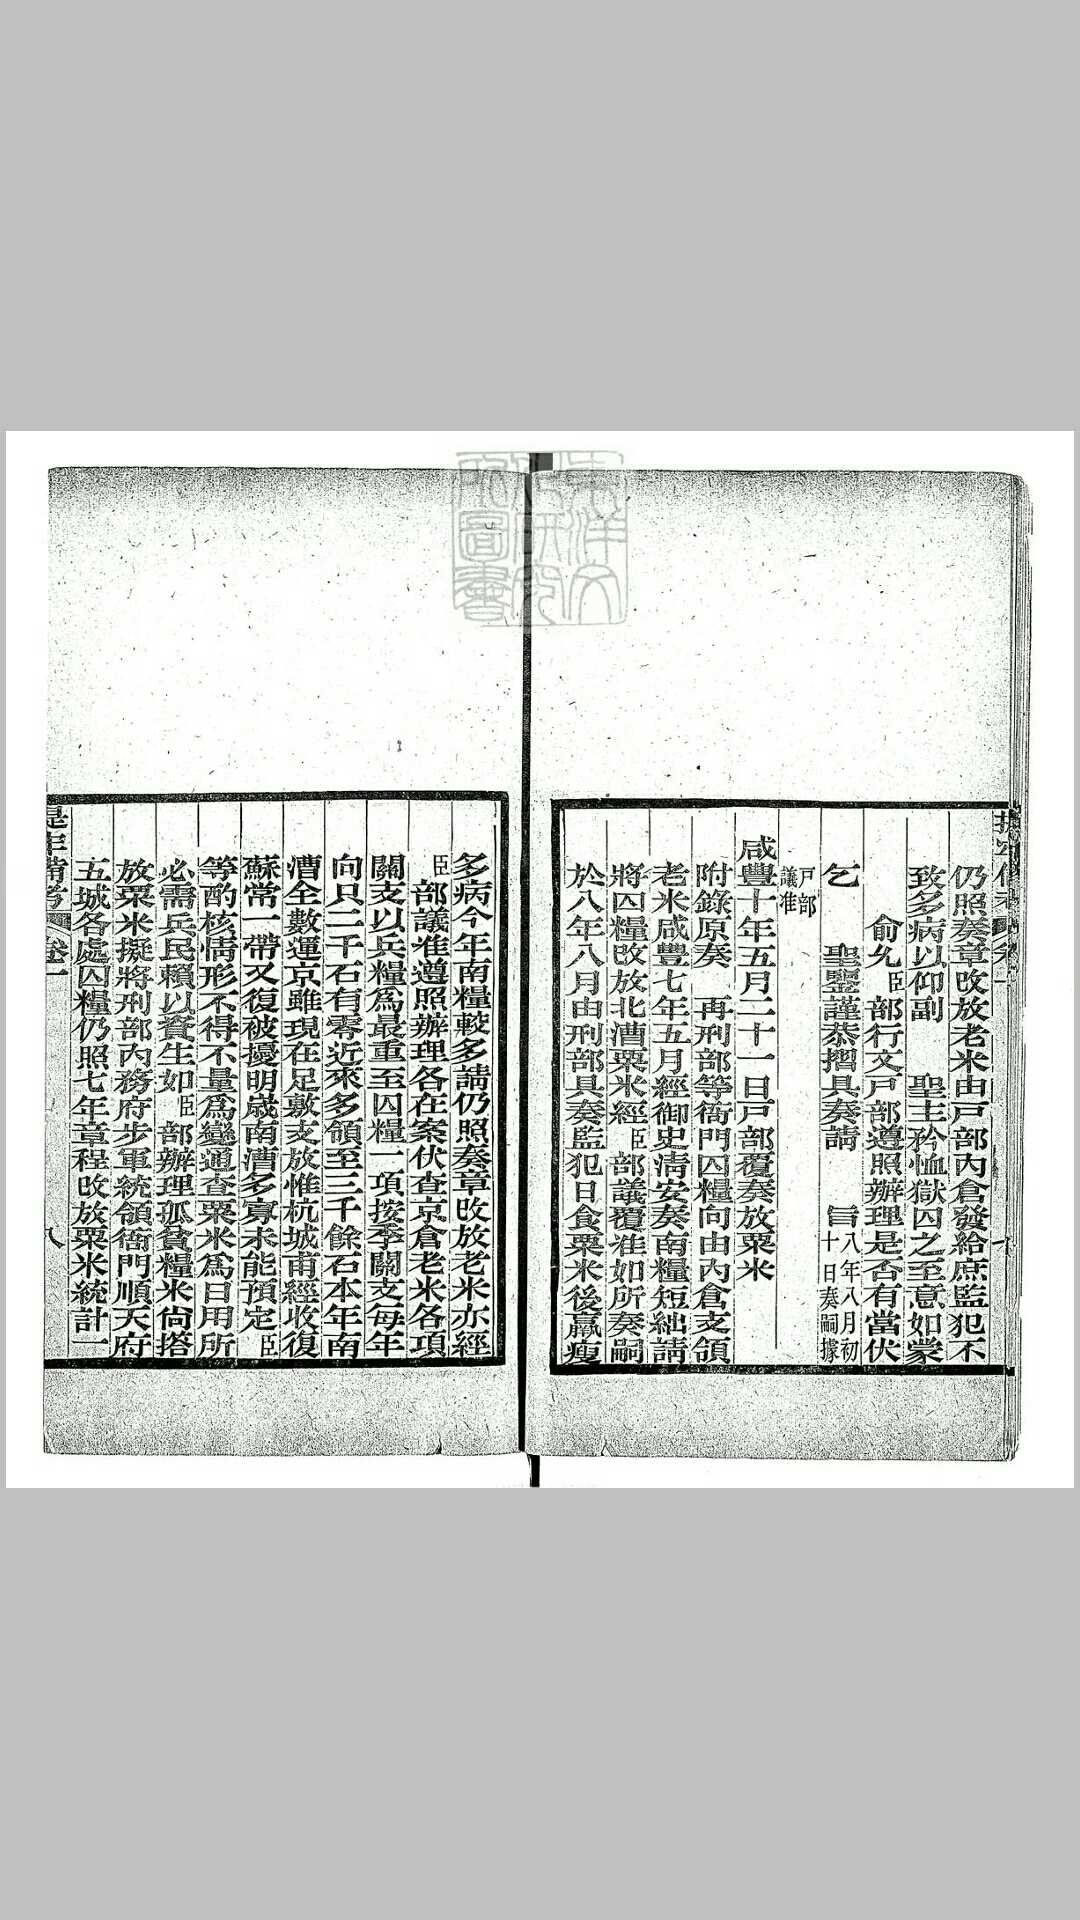 仍照奏章改放老米由戸部内倉發給庶監犯不
致多病以仰副　聖主矜恤獄囚之至意如蒙
俞允臣部行文戸部遵照辦理是否有當伏
乞　聖鑒謹恭摺具奏請　旨八年八月初十日奏嗣據
戸部議准
咸豐十年五月二十一日戸部覆奏放粟米
附錄原奏　再刑部等衙門囚糧向由内倉支領
老米咸豐七年五月經御史清安奏南糧短絀請
將囚糧改放北漕粟米經臣部議覆准如所奏嗣
於八年八月由刑部具奏監犯日食粟米後羸瘦
多病今年南糧較多請仍照奏章改放老米亦經
臣部議准遵照辦理各在案伏查京倉老米各項
關支以兵糧爲最重至囚糧一項按季關支每年
向只二千石有零近來多領至三千餘石本年南
漕全數運京雖現在足敷支放惟杭城甫經收復
蘇常一帶又復被擾明歲南漕多寡未能預定臣
等酌核情形不得不量爲變通查粟米爲日用所
必需兵民賴以資生如臣部辦理孤貧糧米尙搭
放粟米擬將刑部内務府步軍統領衙門順天府
五城各處囚糧仍照七年章程改放粟米統計一
提牢備考　卷一　八